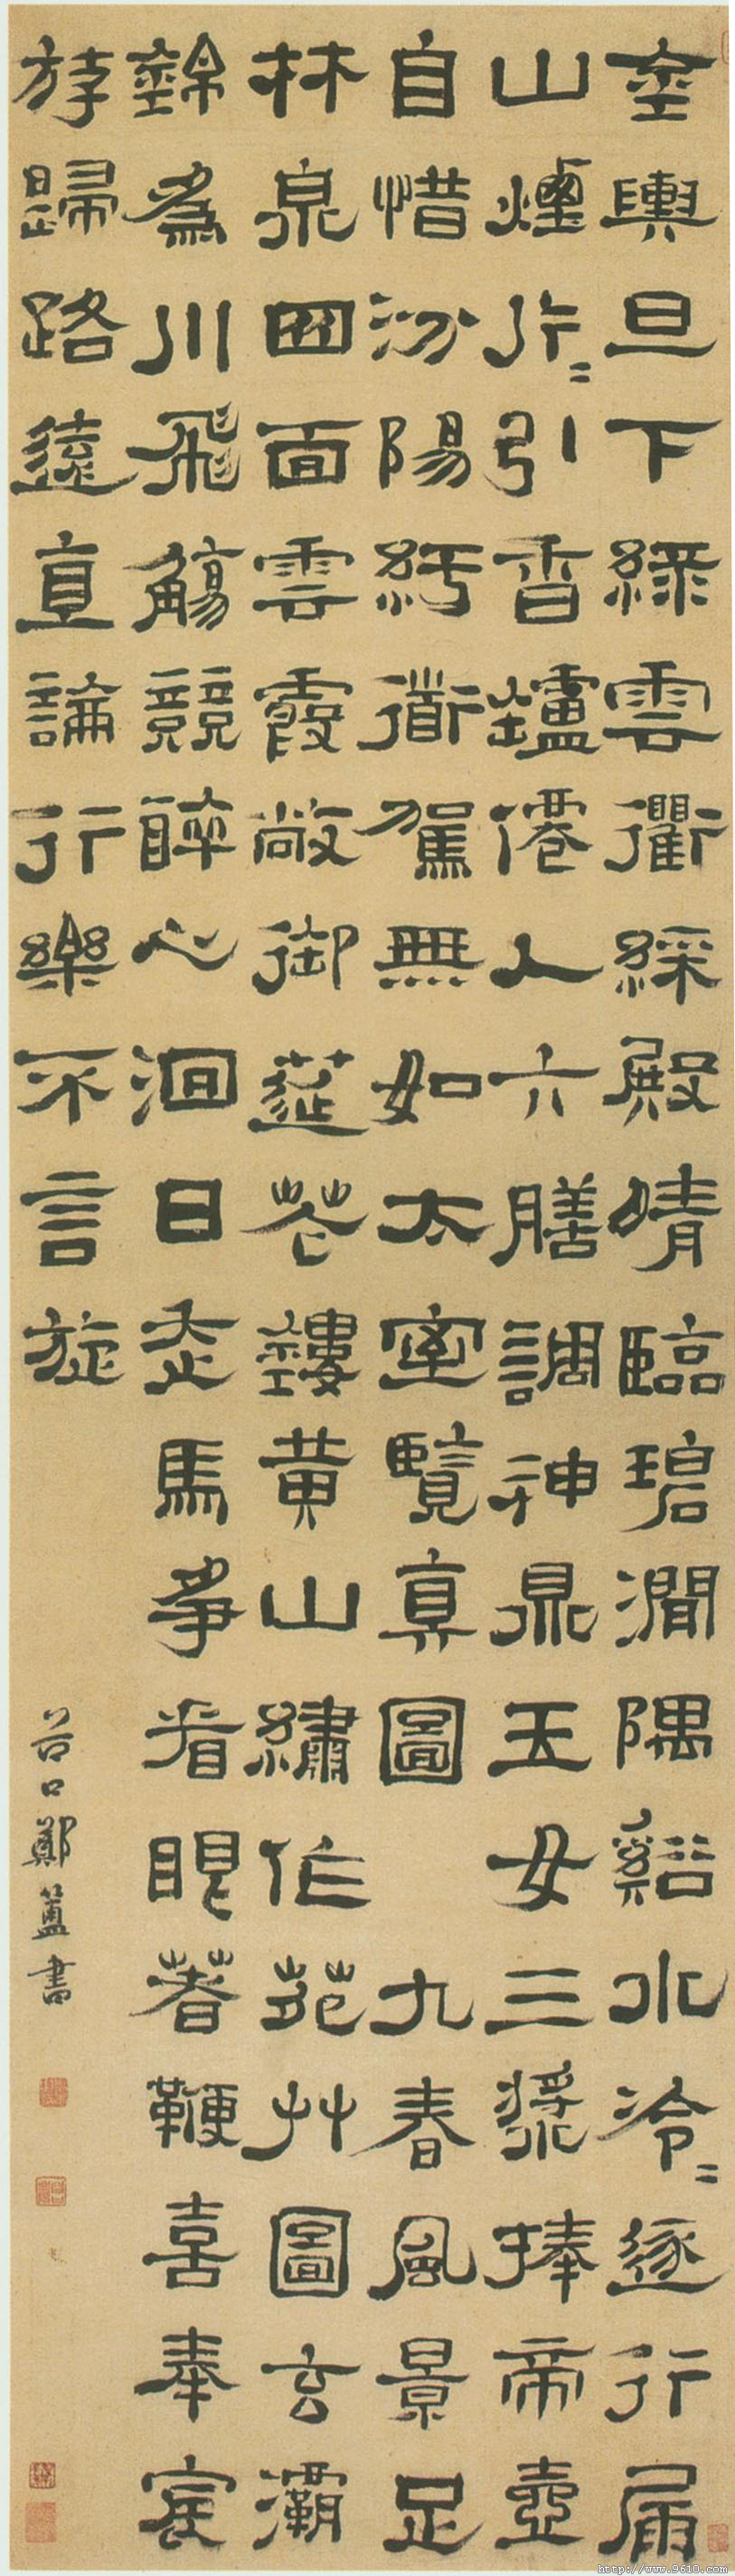 金輿旦下綠雲衢綵殿晴臨碧澗隅谿水泠〻逐行屚
山煙片〻引香鑪僊人六膳調神鼎玉女三漿捧帝壺
自惜汾陽紆衜駕無如太室覽真圖　九春風景足
林泉四面雲霞敞御筵花鏤黃山繡作苑艸圖玄灞
錦為川飛觴競醉心洄日走馬爭看眼著鞭喜奉宸
斿歸路遠直論行樂不言旋
谷口鄭簠書
http://www.9610.com